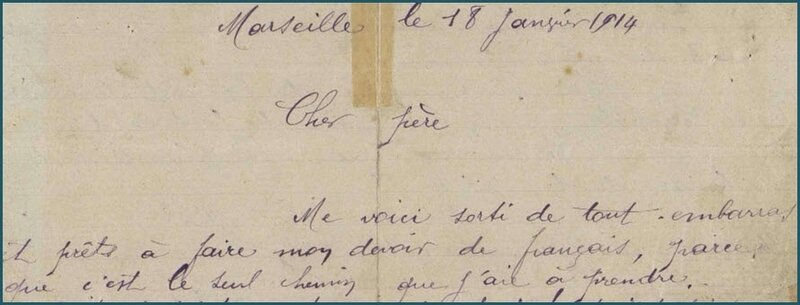 Marseille le 18 Janvier 1914
Cher père
Me voici sorti de tout embarras
et prêts à faire mon devoir de français, parce
que c'est le seul chemin que j'aie à prendre.